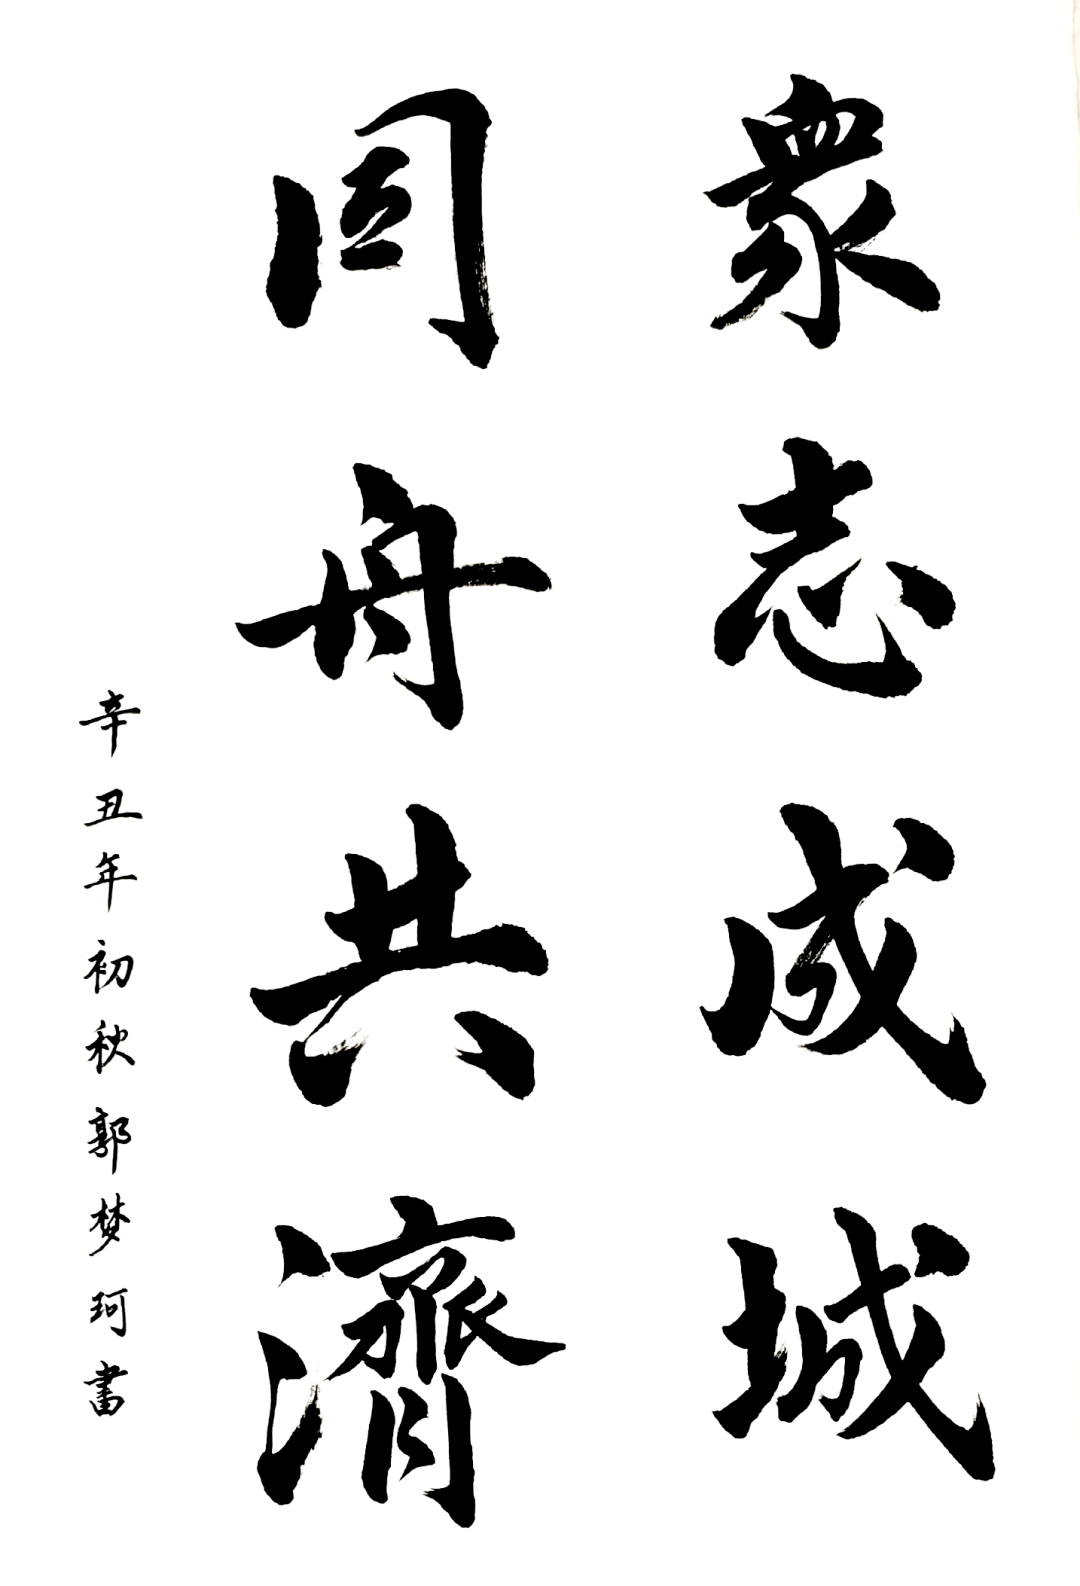 衆志成城
同舟共濟
辛丑年初秋郭梦珂書